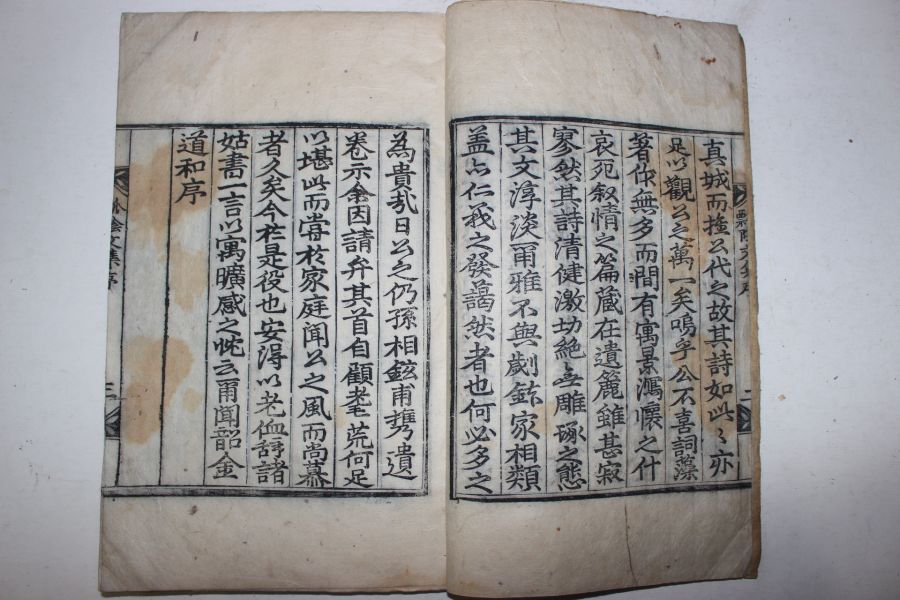 真城而擅公代之故其詩如此〻亦
足以觀公之萬一矣嗚乎公不喜詞藻
著作無多而間有寓景瀉懷之什
哀死叙情之篇蔵在遺簏雖甚寂
寥然其詩清健激切絶無雕琢之態
其文淳淡爾雅不與劌鉥家相類
盖亦仁義之發藹然者也何必多之
為貴㢤日公之仍孫相鉉甫携遺
卷示余因請弁其首自顧耄荒何足
以堪此而甞於家庭聞公之風而尚慕
者久矣今於是役也安得以老傁辞諸
姑書一言以寓曠感之忱云爾聞韶金
道和序